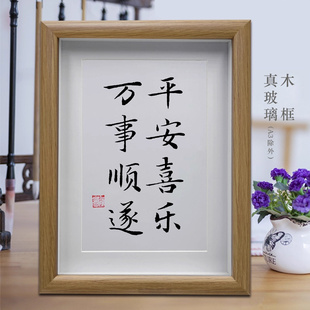 平安喜乐
万事顺遂
木框
真玻璃
(A3除外)